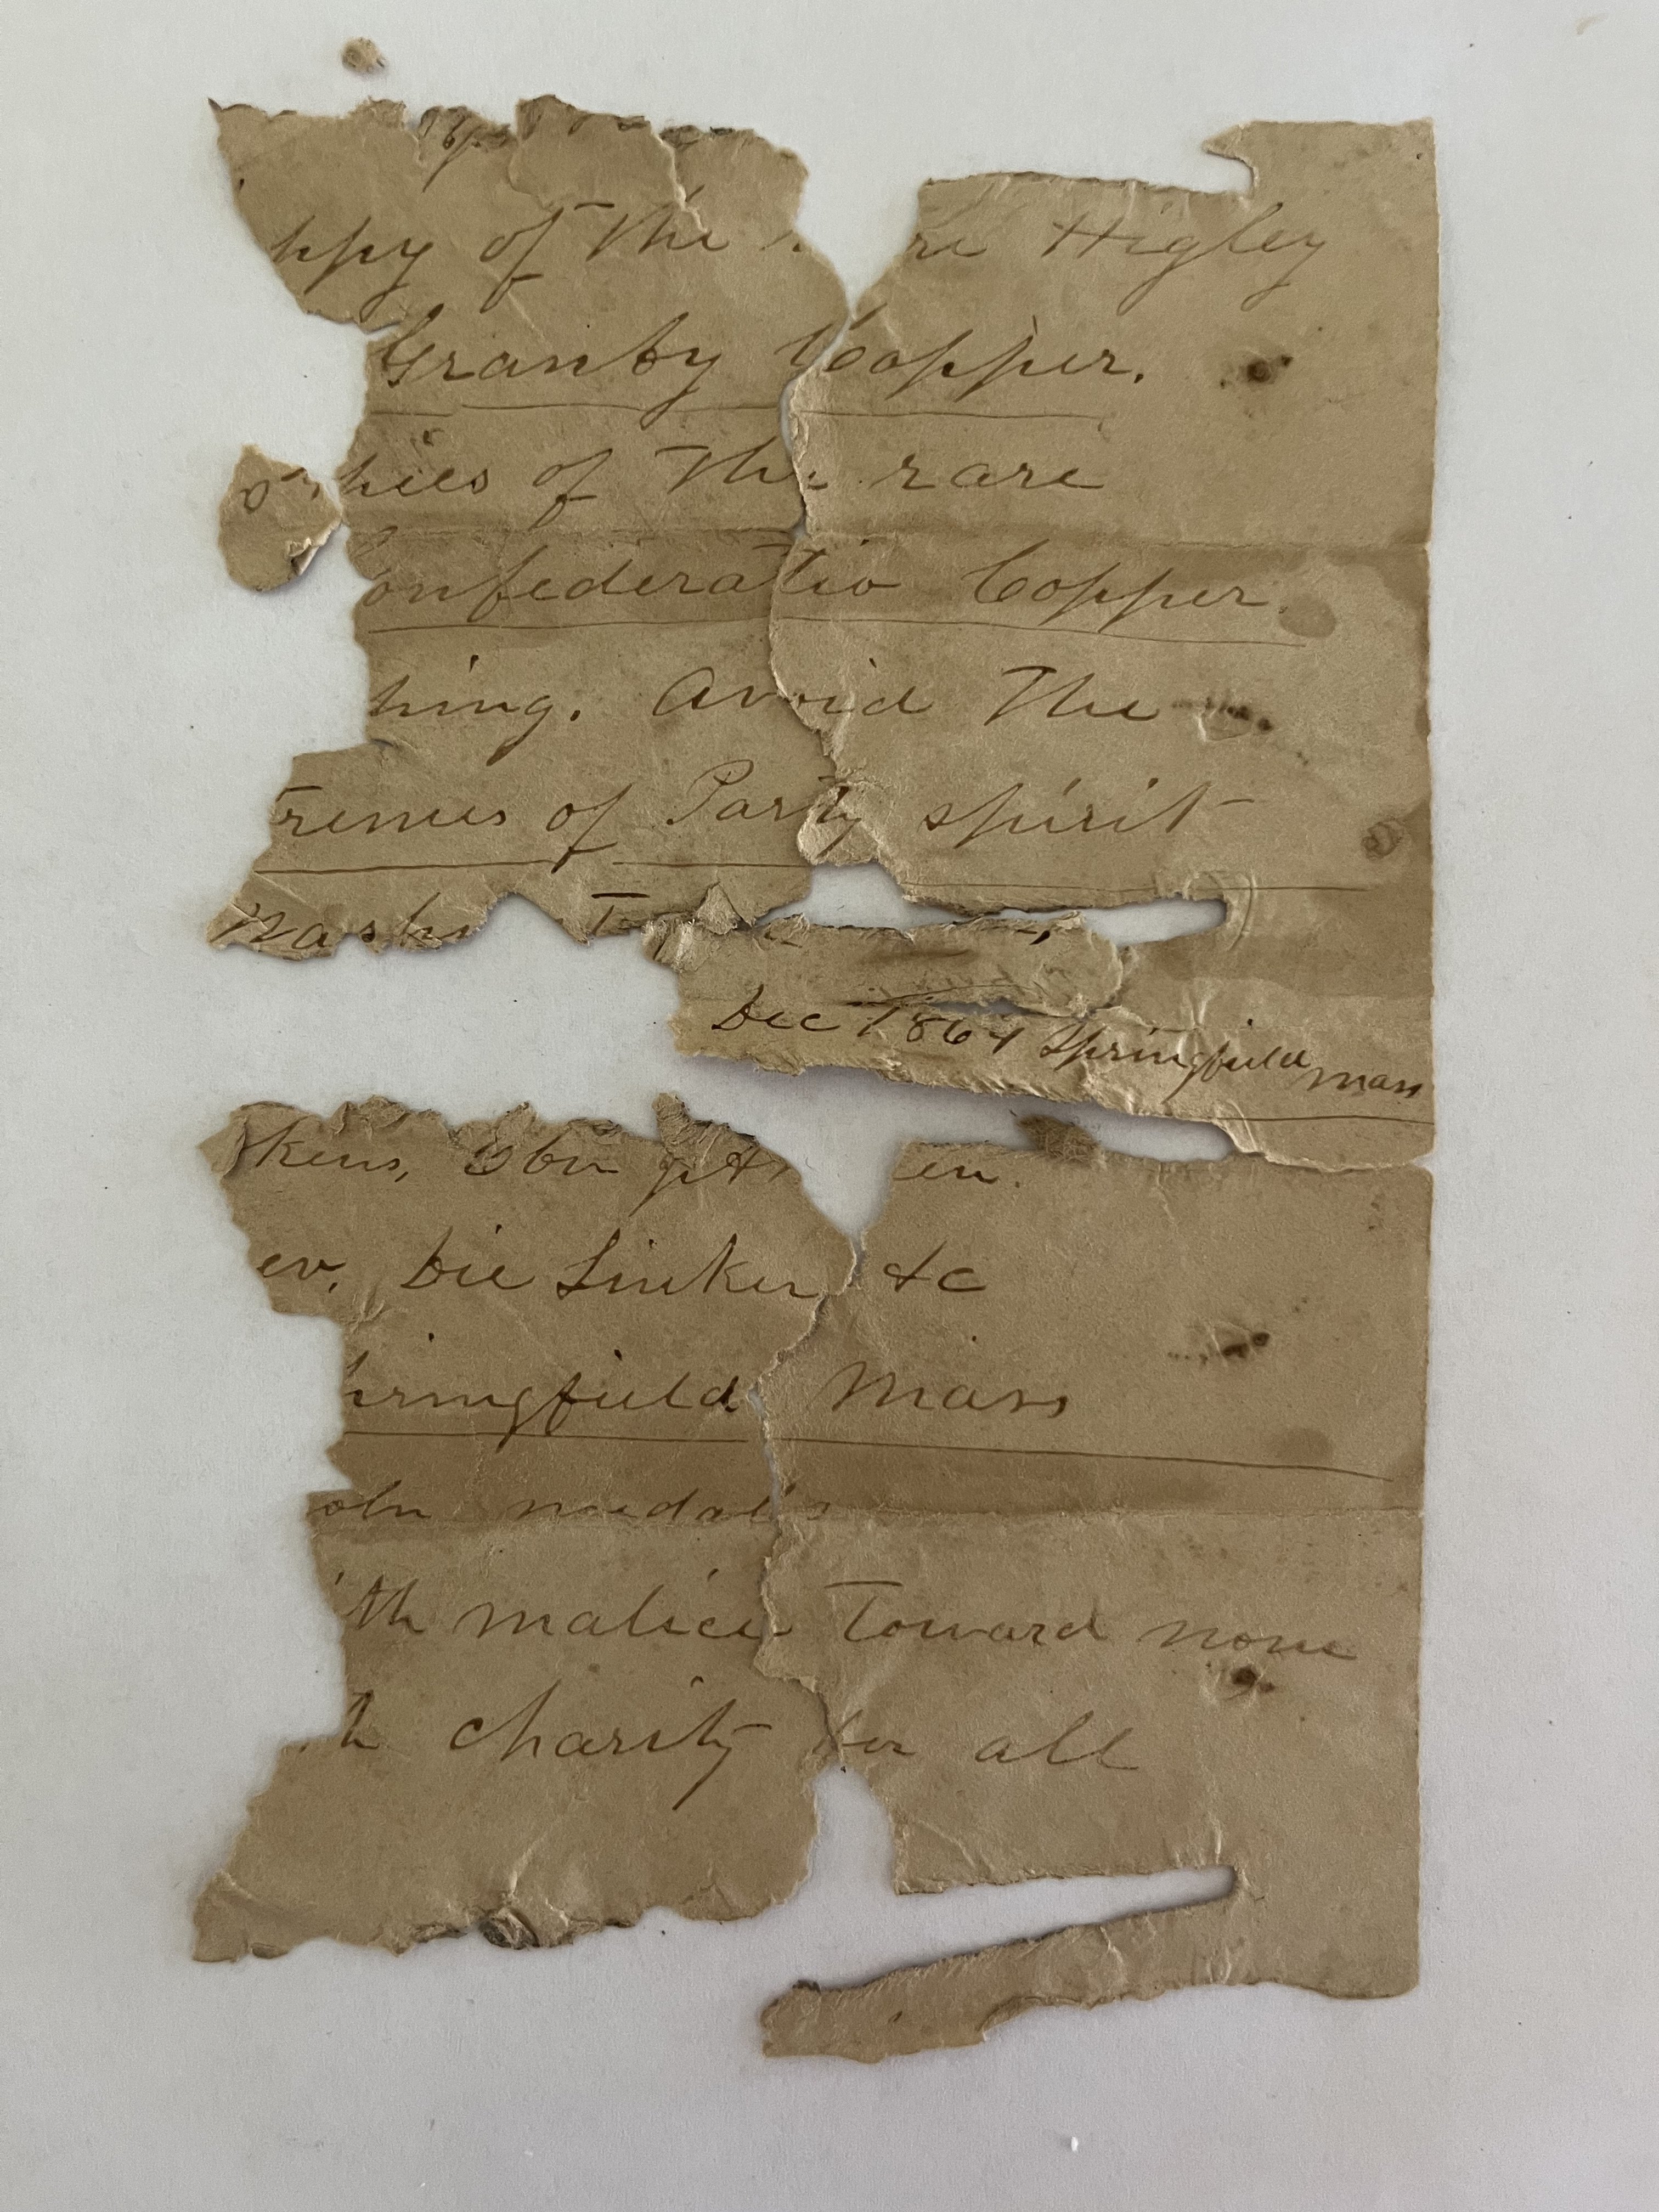 opy of the re Higley
Granby Copper.
pies of the rare
onfederatio Copper.
hing. Avoid the
tremes of Party spirit
Wash
Dec 1864 Springfield Mass
kens,
er. Die Sinker &c
pringfield Mass
oln medal's
ith malice Toward none
th charity for all